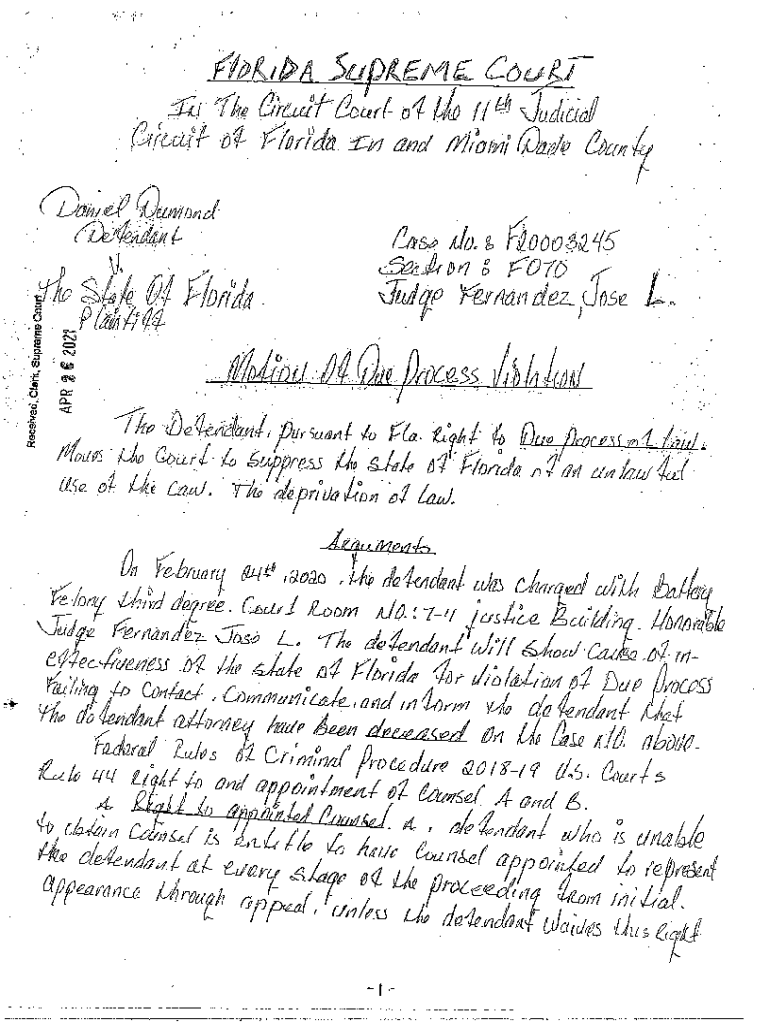 FLORIDA SUPREME COURT
In The Circuit Court of the 11th Judicial
Circuit of Florida In and Miami Dade County
Daniel Dumond
Defendant
V.
The State Of Florida
Plaintiff
Case No.: F20003245
Section: F070
Judge Fernandez, Jose L.
Received, Clerk, Supreme Court
APR 26 2021
Motion Of Due Process Violation
The Defendant, pursuant to Fla. Right to Due Process of Law.
Moves the Court to suppress the state of Florida of an unlawful
use of the law. The deprivation of law.
Arguments
On February 24th, 2020, the defendant was charged with Battery
Felony third degree. Court Room NO.: 7-4 justice Building. Honorable
Judge Fernandez Jose L. The defendant will show cause of in-
effectiveness of the state of Florida for violation of Due Process
Failing to Contact, Communicate, and inform the defendant that
the defendant attorney have been deceased on the Case NO. above.
Federal Rules of Criminal Procedure 2018-19 U.S. Courts
Rule 44 Right to and appointment of counsel A and B.
A Right to appointed Counsel. A. defendant who is unable
to obtain Counsel is entitle to have Counsel appointed to represent
the defendant at every stage of the proceeding from initial
appearance through appeal, unless the defendant waives this right
-1-